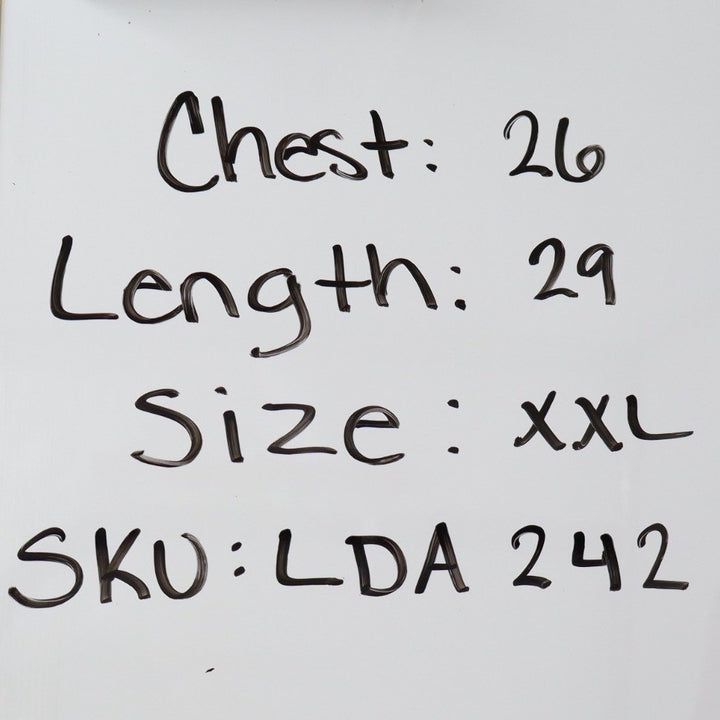 Chest: 26
Length: 29
Size: XXL
SKU: LDA 242